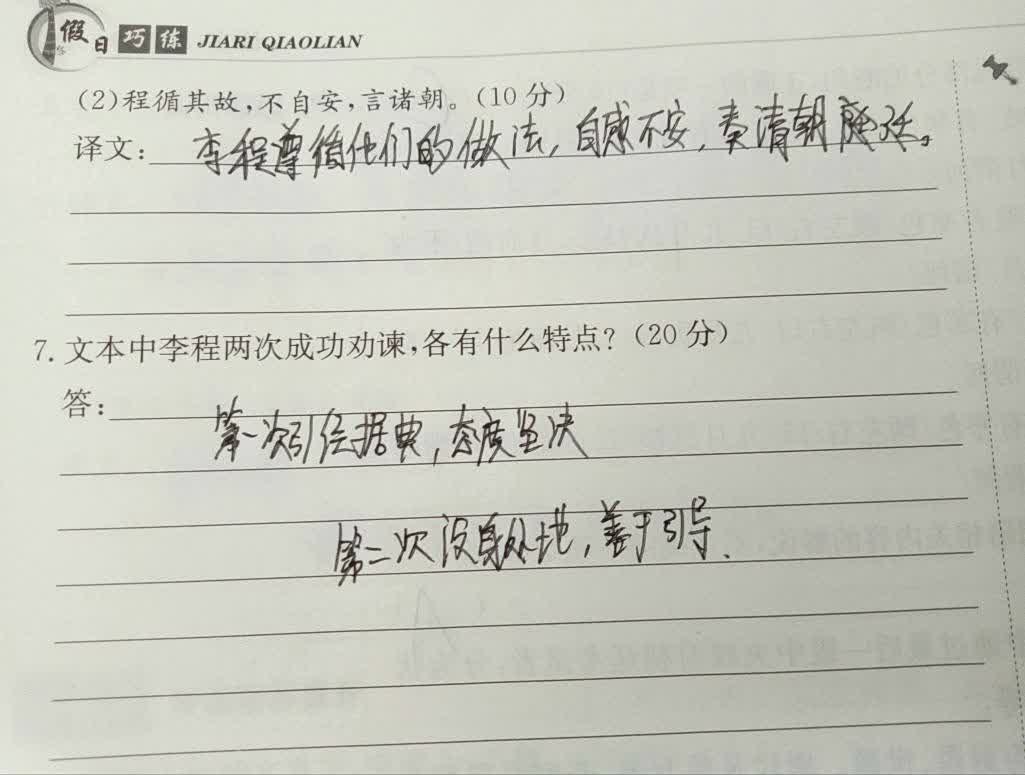 假日巧练 JIARI QIAOLIAN
(2)程循其故,不自安,言诸朝。(10分)
译文: 李程遵循他们的做法,自感不安,奏请朝廷。
7. 文本中李程两次成功劝谏,各有什么特点?(20分)
答:
第一次引经据典,态度坚决
第二次设身处地,善于引导.